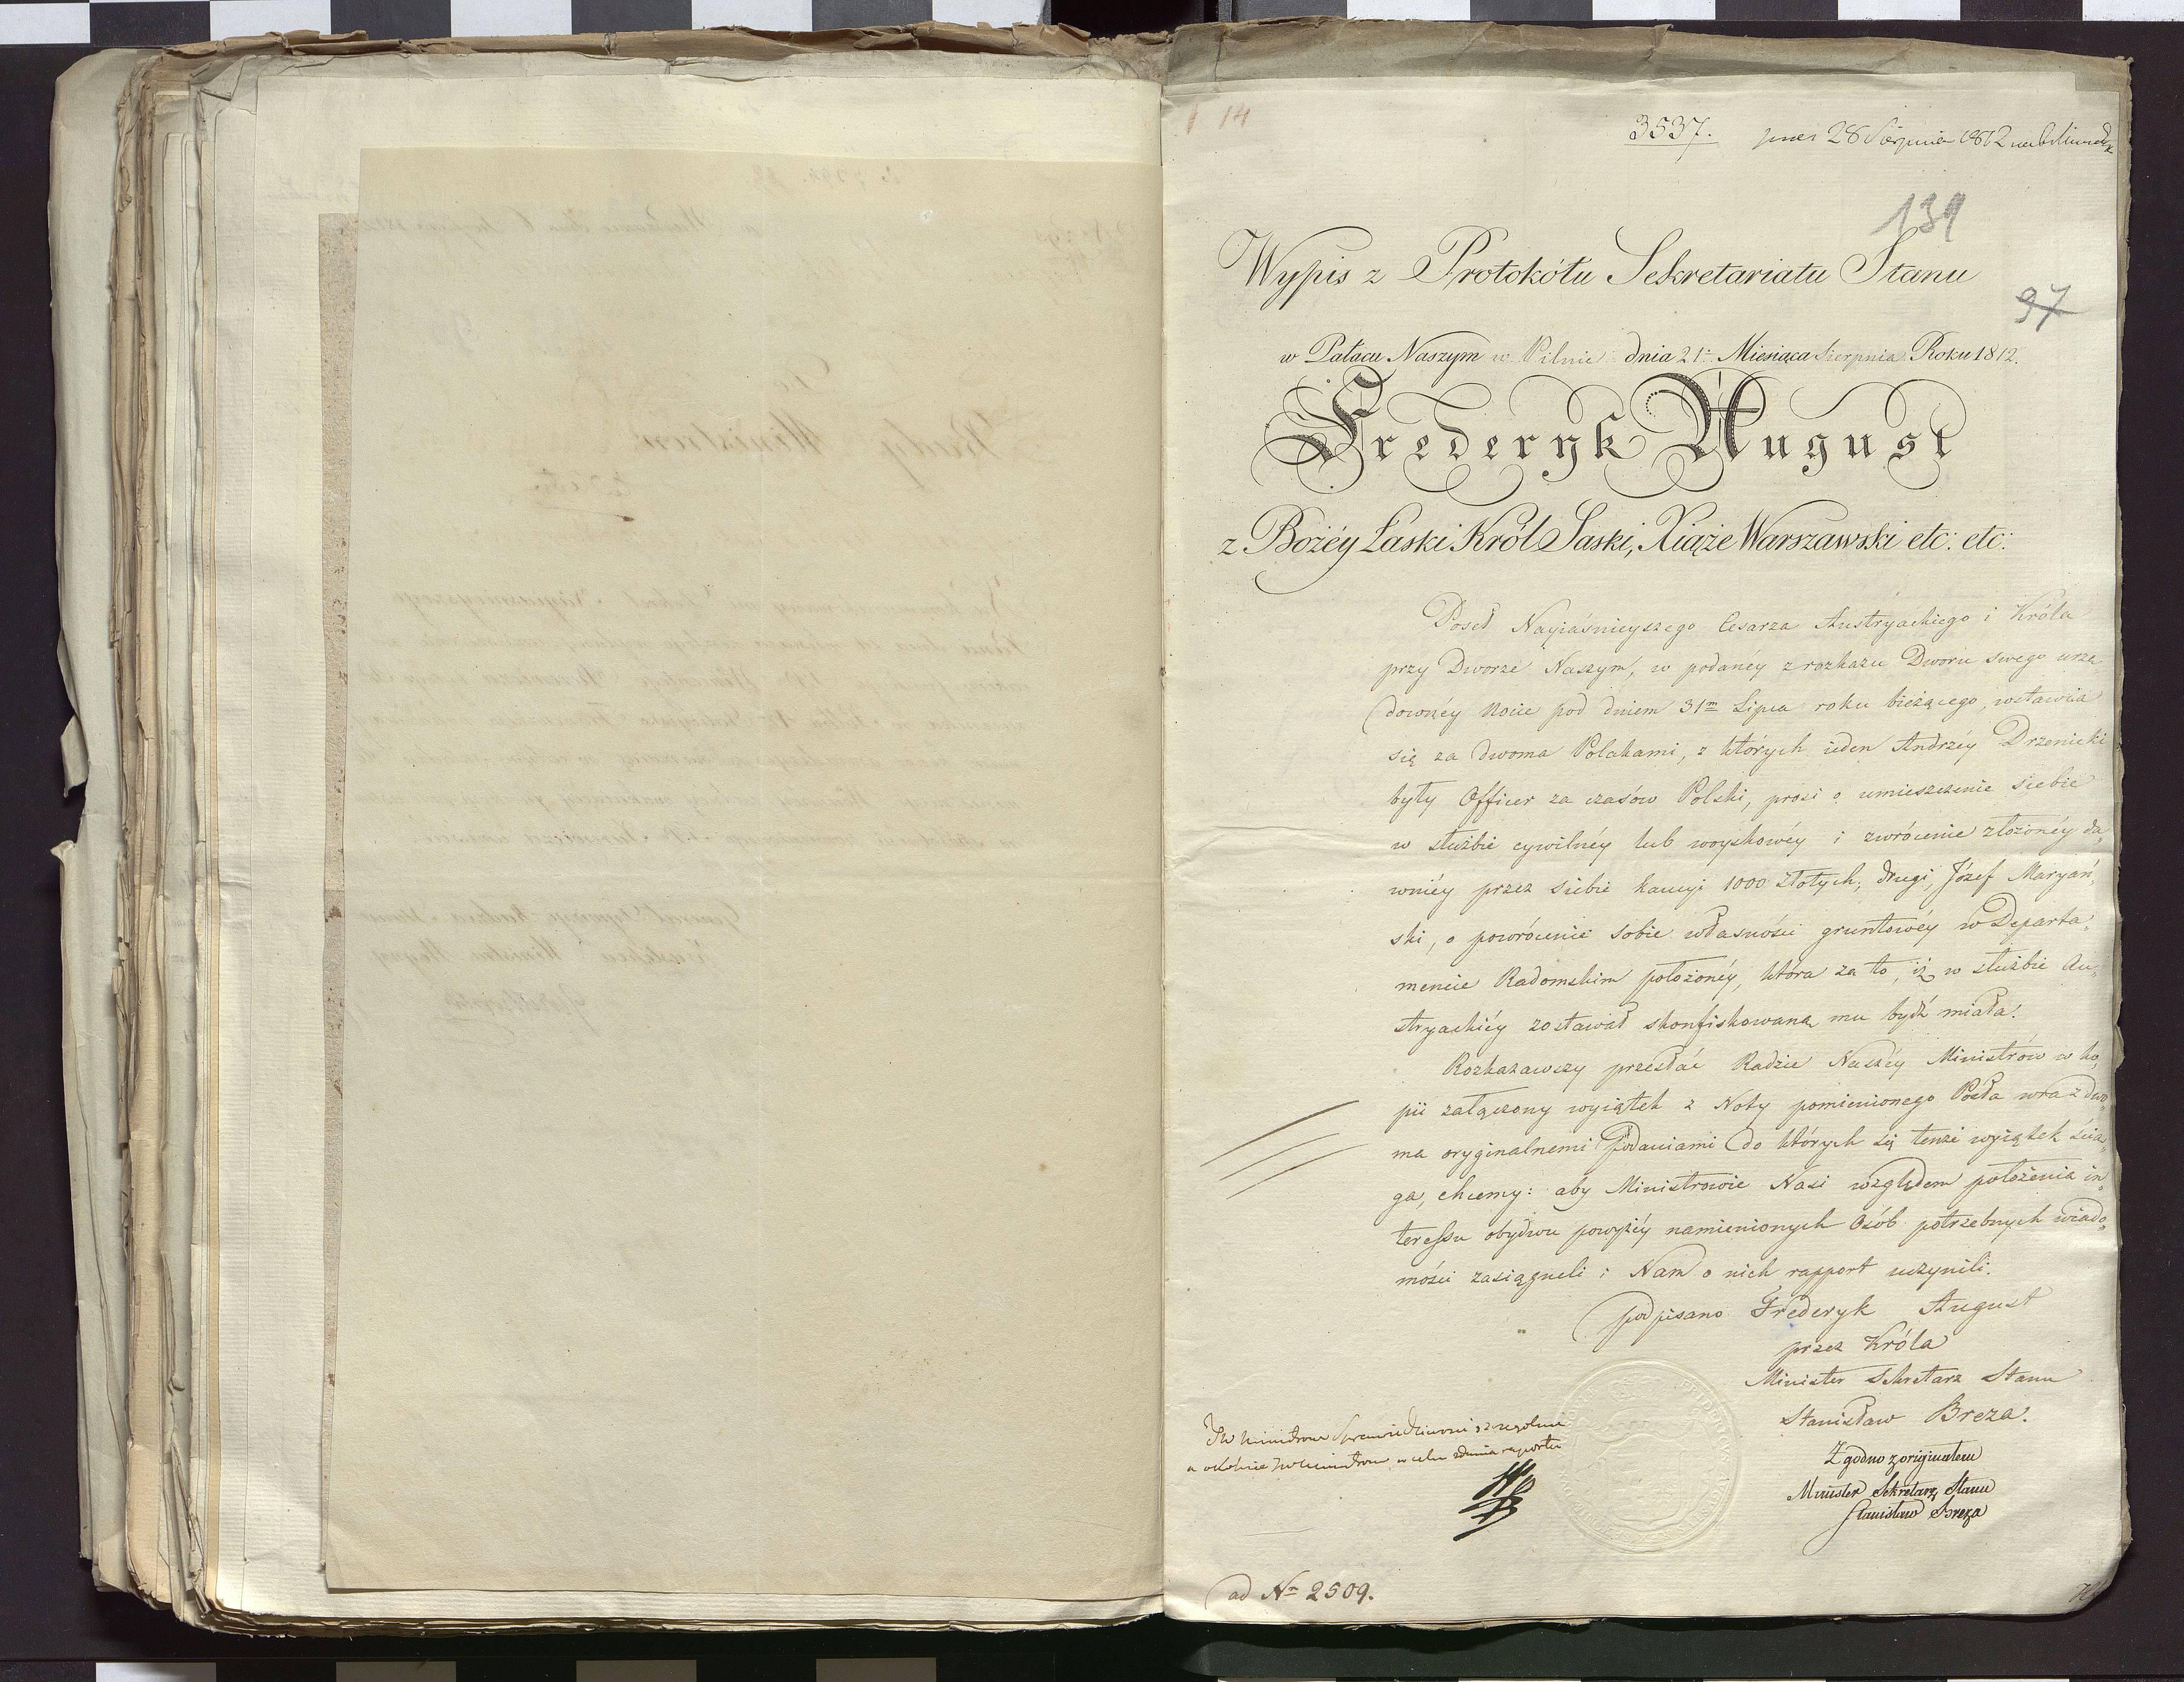 14
3537.
28 Sierpnia 1812
139
Wypis z Protokółu Sekretariatu Stanu
97
w Pałacu Naszym w Pilnic dnia 21. Miesiąca Sierpnia Roku 1812.
Frederyk August
z Bożéy Łaski Król Saski, Xiąże Warszawski etc: etc:
Poseł Nayiaśnieyszego Cesarza Austryackiego i Króla
przy Dworze Naszym, w podanéy z rozkazu Dworu swego urzę
downéy Nocie pod dniem 31m Lipca roku bieżącego, wstawia
się za dwoma Polakami, z których ieden Andrzéy Drzenicki
były Officer za czasów Polski, prosi o umieszczenie siebie
w służbie cywilnéy lub woyskowéy i zwrócenie złożonéy da,,
wniéy przez siebie kaucyi 1000 Złotych; drugi, Józef Maryań,,
ski, o powrócenie sobie własności gruntowéy w Departa,,
mencie Radomskim położonéy, która za to, iż w służbie Au,,
stryackiéy zostawał skonfiskowaną mu bydź miała.
Rozkazawszy przesłać Radzie Naszéy Ministrów w ko,,
pii załączony wyiątek z Noty pomienionego Posła wraz z dwo,,
ma oryginalnemi Podaniami do których się tenże wyiątek ścia,,
ga, chcemy: aby Ministrowie Nasi względem położenia in,,
teressu obydwu powyżéy namienionych Osób potrzebnych wiado,,
mości zasiągneli i Nam o nich rapport uczynili.
podpisano Frederyk August
przez Króla
Minister Sekretarz Stanu
Stanisław Breza.
Zgodno z originałem
Minister Sekretarz Stanu
Stanisław Breza
ad Nr 2509.